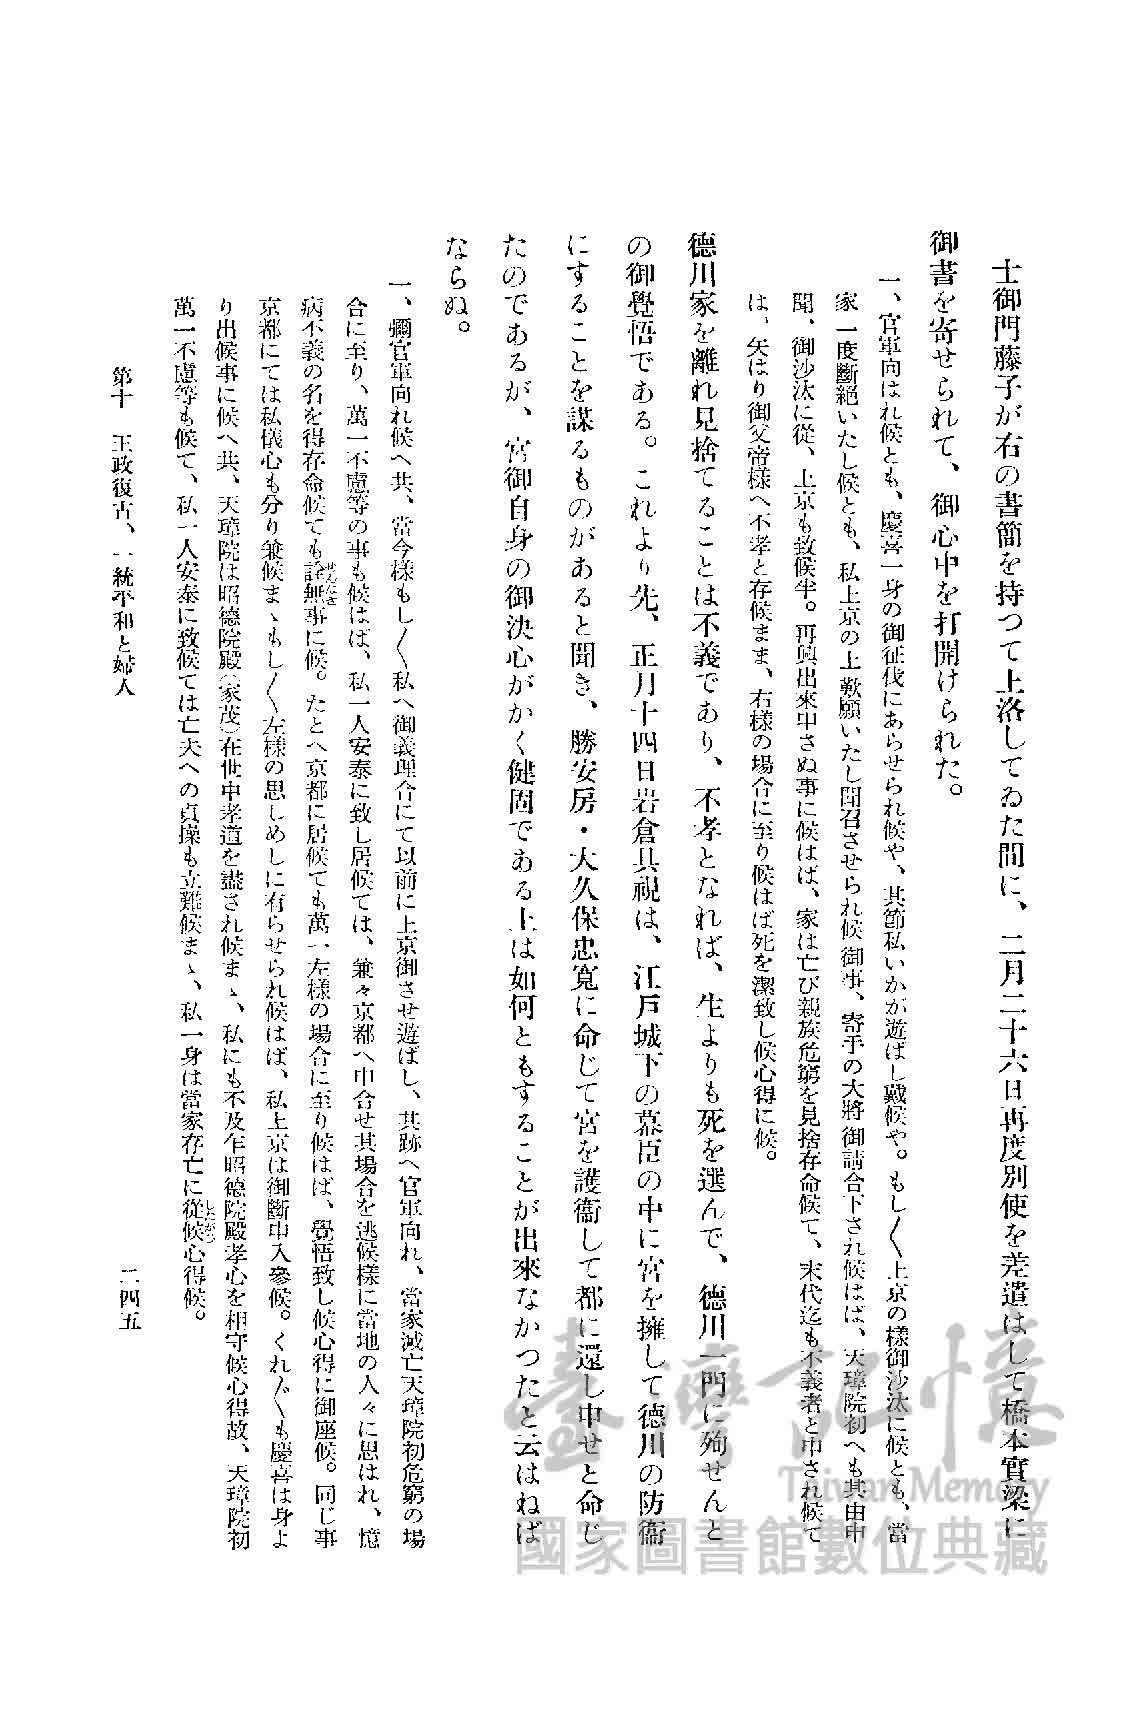 土御門藤子が右の書簡を持つて上洛してゐた間に、二月二十六日再度別使を差遣はして橋本實梁に
御書を寄せられて、御心中を打開けられた。
一、官軍向はれ候とも、慶喜一身の御征伐にあらせられ候や、其節私いかが遊ばし戴候や。もし〱上京の樣御沙汰に候とも、當
家一度斷絕いたし候とも、私上京の上歎願いたし聞召させられ候御事、寄手の大將御請合下され候はば、天璋院初へも其由申
聞、御沙汰に從、上京も致候半。再興出來申さぬ事に候はば、家は亡び親族危窮を見捨存命候て、末代迄も不義者と申され候て
は、矢はり御父帝樣へ不孝と存候まま、右樣の場合に至り候はば死を潔致し候心得に候。
德川家を離れ見捨てることは不義であり、不孝となれば、生よりも死を選んで、德川一門に殉せんと
の御覺悟である。これより先、正月十四日岩倉具視は、江戶城下の幕臣の中に宮を擁して德川の防衞
にすることを謀るものがあると聞き、勝安房・大久保忠寬に命じて宮を護衞して都に還し申せと命じ
たのであるが、宮御自身の御決心がかく健固である上は如何ともすることが出來なかつたと云はねば
ならぬ。
一、彌官軍向れ候へ共、當今樣もし〱私へ御義理合にて以前に上京御させ遊ばし、其跡へ官軍向れ、當家滅亡天璋院初危窮の場
合に至り、萬一不慮等の事も候はば、私一人安泰に致し居候ては、兼々京都へ申合せ其場合を逃候樣に當地の人々に思はれ、憶
病不義の名を得存命候ても詮無事に候。たとへ京都に居候ても萬一左樣の場合に至り候はば、覺悟致し候心得に御座候。同じ事
京都にては私儀心も分り兼候まゝもし〱左樣の思しめしに有らせられ候はば、私上京は御斷申入參候。くれ〲も慶喜は身よ
り出候事に候へ共、天璋院は昭德院殿(家茂)在世中孝道を盡され候まゝ、私にも不及乍昭德院殿孝心を相守候心得故、天璋院初
萬一不慮等も候て、私一人安泰に致候ては亡夫への貞操も立難候まゝ、私一身は當家存亡に從候心得候。
第十 王政復古、一統平和と婦人 二四五
臺灣記憶
Taiwan Memory
國家圖書館數位典藏